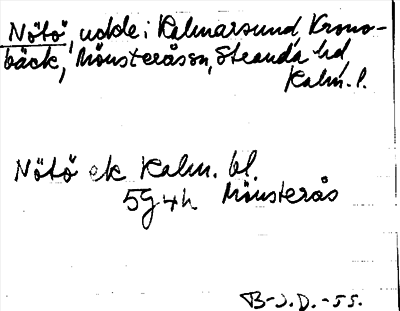 Nötö, udde i Kalmarsund, Krono-
bäck, Mönsteråssn, Stranda hd
Kalm. l.
Nötö ek Kalm. bl.
5g4h Mönsterås
B-J.D.-55.